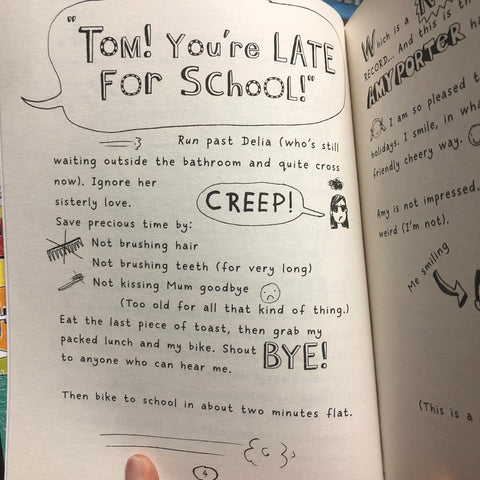 "TOM! You're LATE
FOR SCHOOL!"
Run past Delia (who's still
waiting outside the bathroom and quite cross
now). Ignore her
sisterly love.
CREEP!
Save precious time by:
Not brushing hair
Not brushing teeth (for very long)
Not kissing Mum goodbye
(Too old for all that kind of thing.)
Eat the last piece of toast, then grab my
packed lunch and my bike. Shout BYE!
to anyone who can hear me.
Then bike to school in about two minutes flat.
4
Which is a
RECORD... And this is th
AMY PORTER ha
I am so pleased t
holidays. I smile, in wha
friendly cheery way.
Amy is not impressed.
weird (I'm not).
Me smiling
(This is a